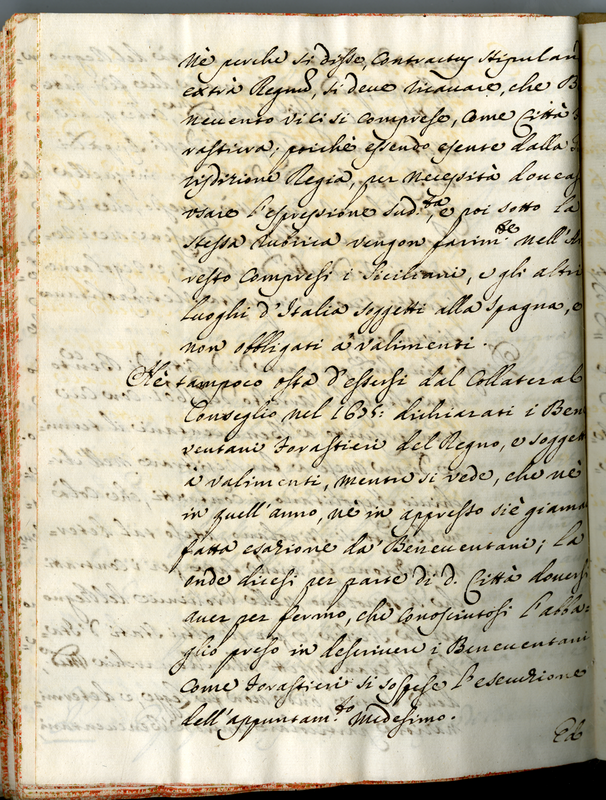 nè perche si disse, Contractus stipulari
extrà Regnũ, si deve ricavare, che B
neuento vi ci si comprese, come Città fo
rastiera; poiche essendo esente dalla Iu
risdizione Regia, per necessità doueas
usare l'espressione sud.ta, e poi sotto la
stessa rubrica vengon parim.te nell'Ar
resto compresi i Siciliani, e gli altri
luoghi d'Italia soggetti alla Spagna, e
non obbligati à valimenti.
Nè tampoco osta d'essersi dal Collateral
Conseglio nel 1635: dichiarati i Ben
ventani forastieri del Regno, e soggett
à valimenti, mentre si vede, che nè
in quell'anno, nè in appresso siè giama
fatta esazione da' Beneuentani; La
onde dicesi per parte di d. Città douersi
auer per fermo, che conosciutosi l'abba=
glio preso in descrivere i Beneuentani
come forastieri si sospese l'esecuzione
dell'appuntam.to medesimo.
Ed